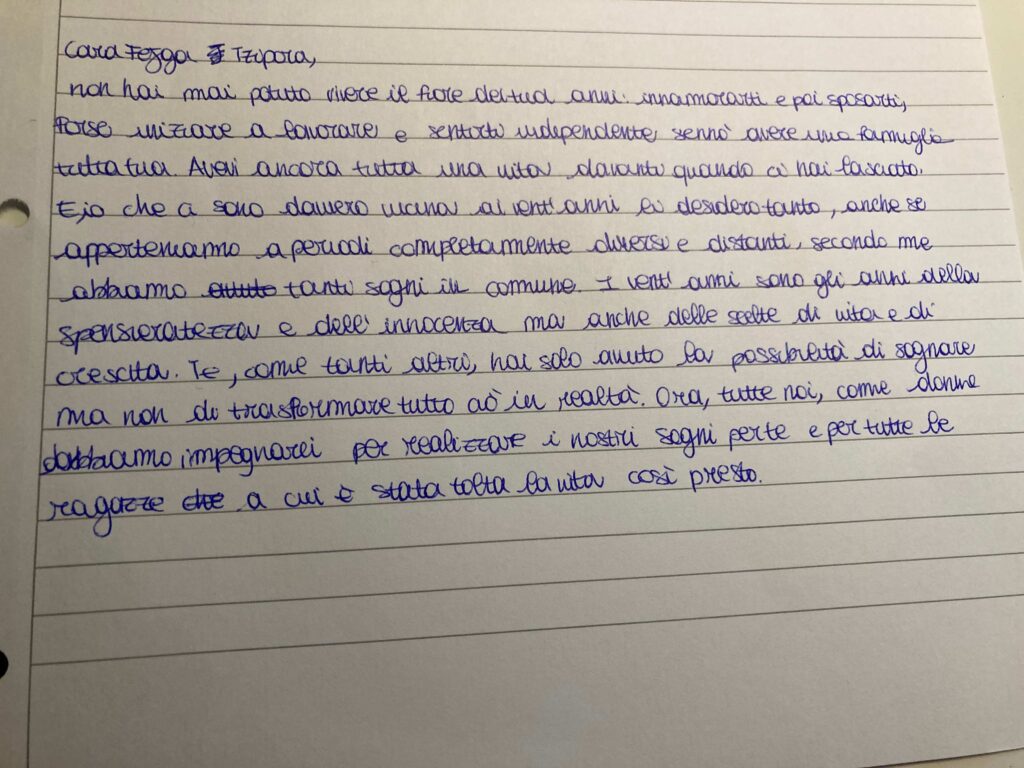 Cara Fejga Tzipora,
non hai mai potuto vivere il fiore dei tua anni: innamorarti e poi sposarti,
forse iniziare a lavorare e sentirti indipendente, sennò avere una famiglia
tutta tua. Avevi ancora tutta una vita davanti quando ci hai lasciato.
E io che ci sono davvero vicina ai vent'anni lo desidero tanto, anche se
apparteniamo a periodi completamente diversi e distanti, secondo me
abbiamo tanti sogni in comune. I vent'anni sono gli anni della
spensieratezza e dell'innocenza ma anche delle scelte di vita e di
crescita. Te, come tanti altri, hai solo avuto la possibilità di sognare
ma non di trasformare tutto ciò in realtà. Ora, tutte noi, come donne
dobbiamo impegnarci per realizzare i nostri sogni per te e per tutte le
ragazze a cui è stata tolta la vita così presto.